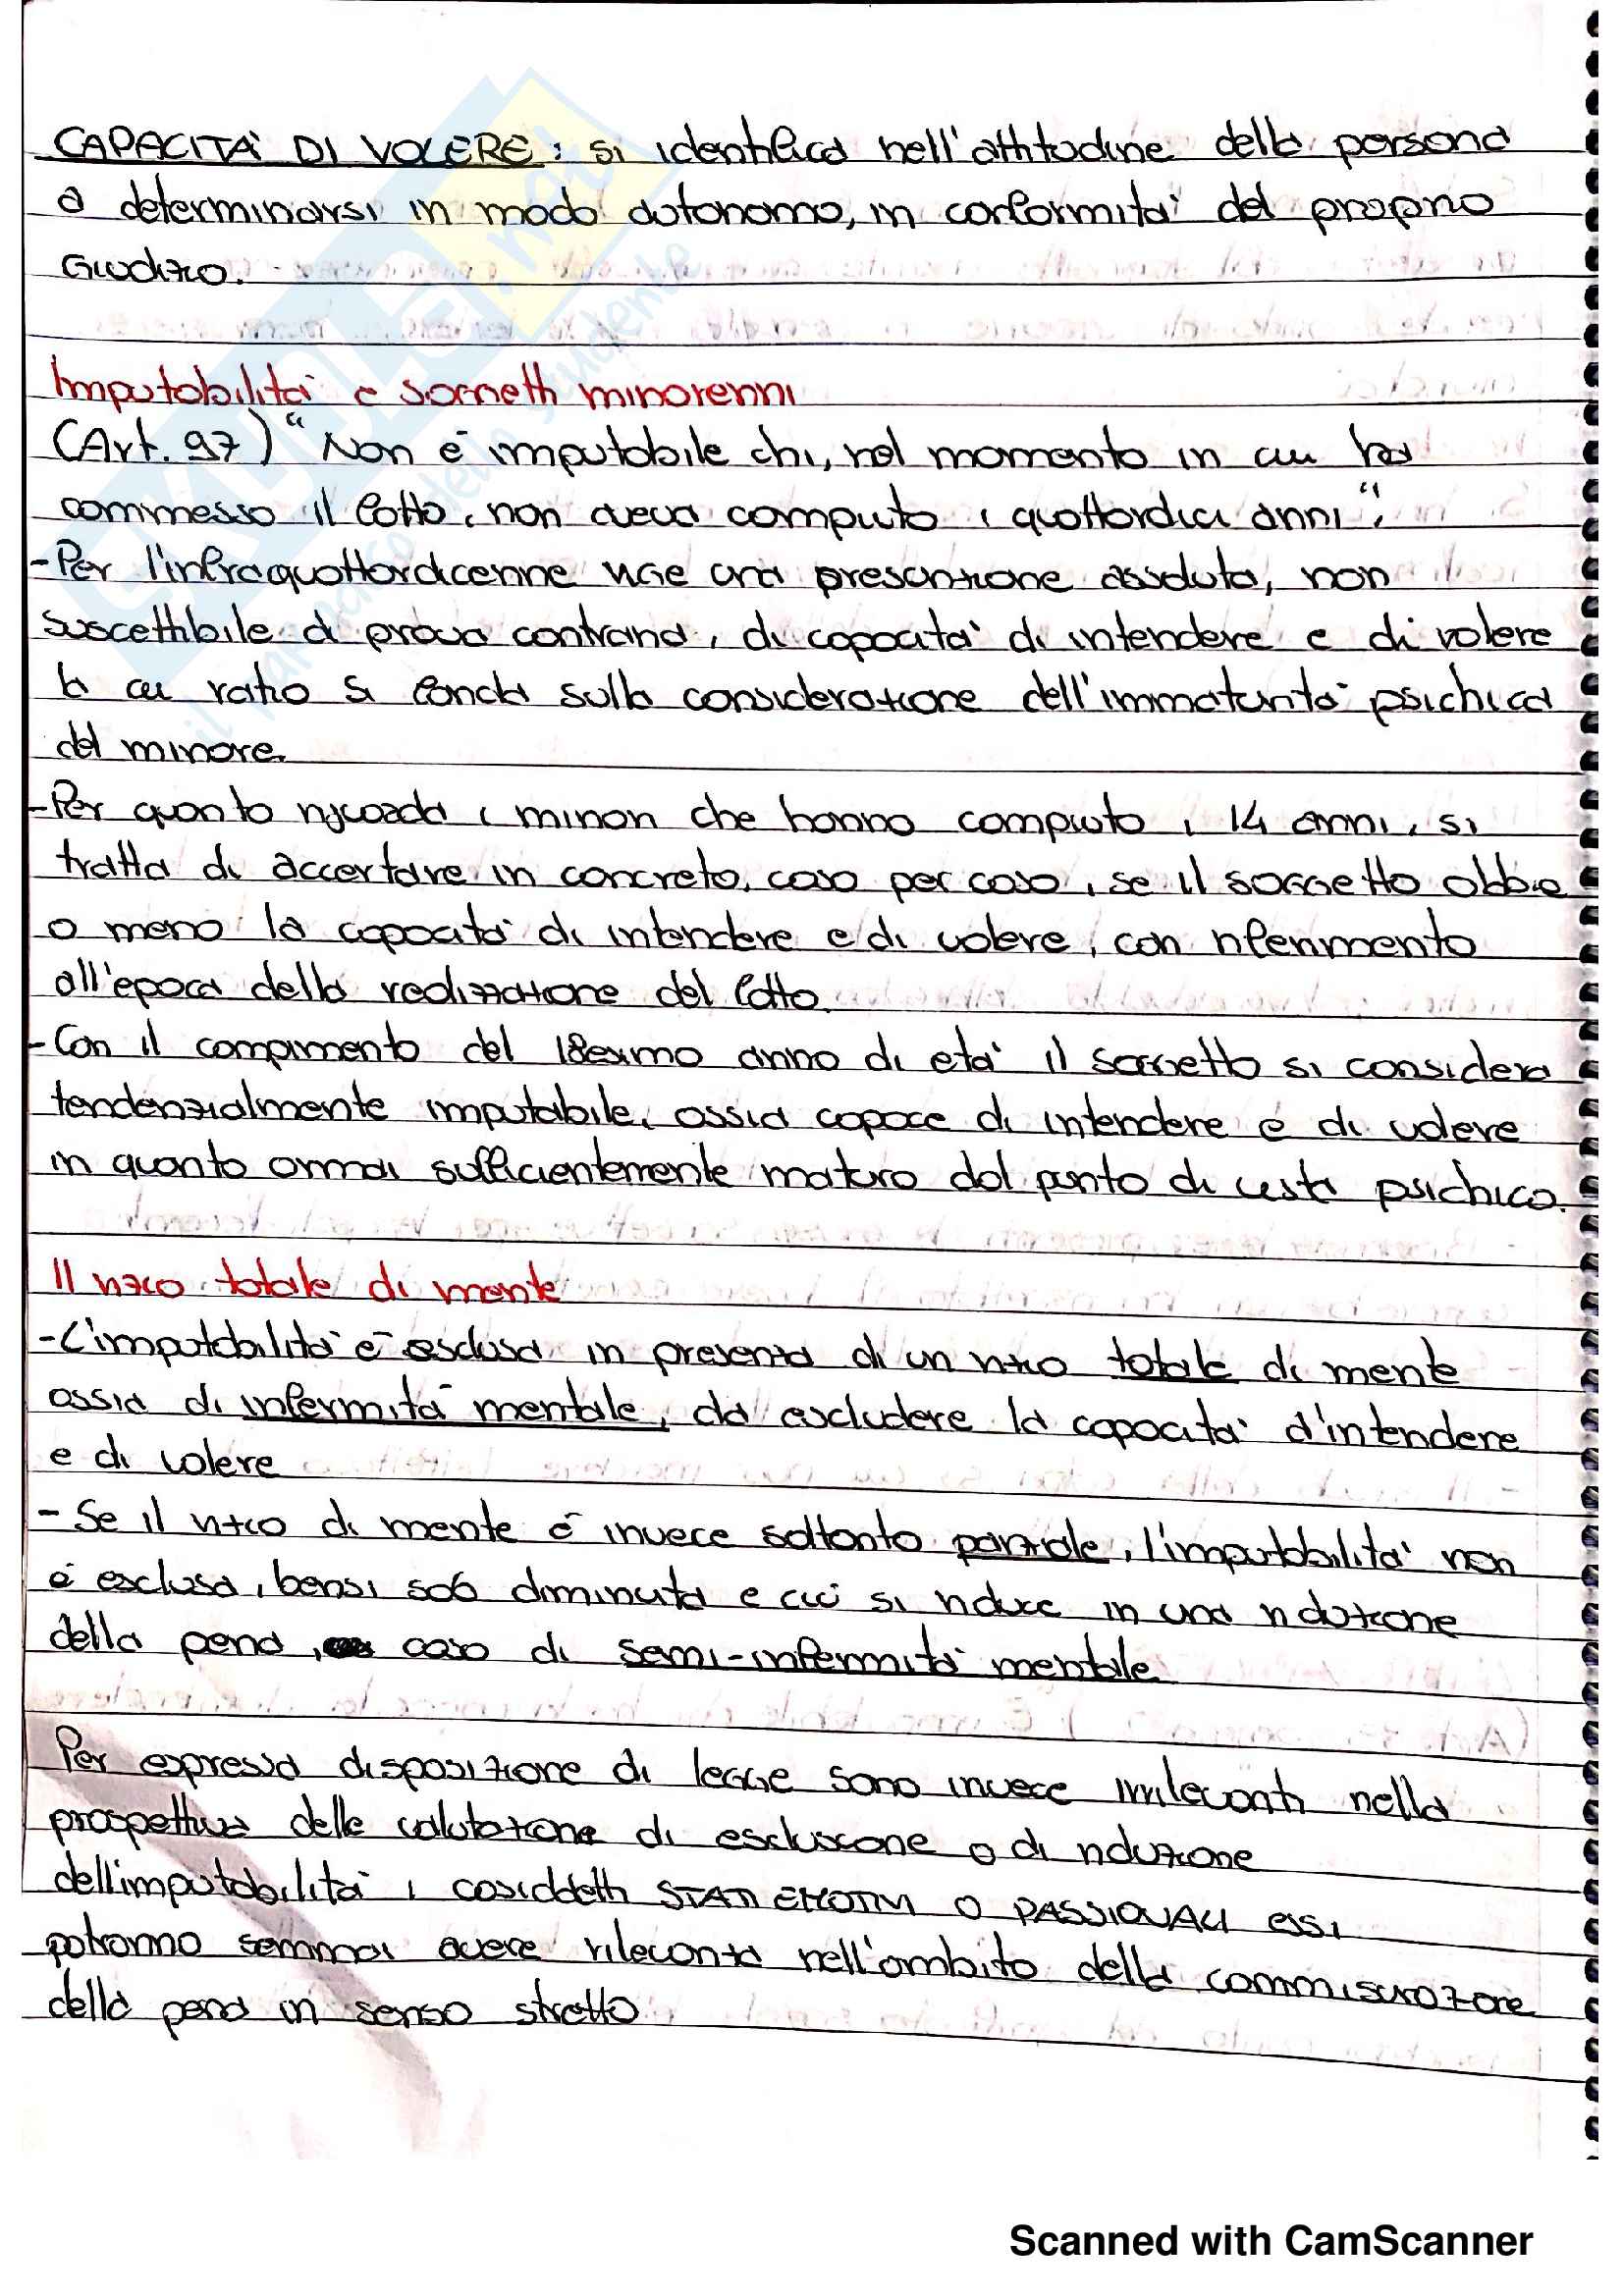 CAPACITA' DI VOLERE: si identifica nell'attitudine della persona
a determinarsi in modo autonomo, in conformita' del proprio
Giudizio.
Imputabilita' e soggetti minorenni
(Art. 97) "Non è imputabile chi, nel momento in cui ha
commesso il fatto, non aveva compiuto i quattordici anni".
-Per l'infraquattordicenne vige una presunzione assoluta, non
suscettibile di prova contraria, di capacita' di intendere e di volere
la cui ratio si fonda sulla considerazione dell'immaturita' psichica
del minore.
-Per quanto riguarda i minori che hanno compiuto i 14 anni, si
tratta di accertare in concreto, caso per caso, se il soggetto abbia
o meno la capacita' di intendere e di volere, con riferimento
all'epoca della realizzazione del fatto.
-Con il compimento del 18esimo anno di eta' il soggetto si considera
tendenzialmente imputabile, ossia capace di intendere e di volere
in quanto ormai sufficientemente maturo dal punto di vista psichico.
Il vizio totale di mente
-L'imputabilita' è esclusa in presenza di un vizio totale di mente
ossia di infermita' mentale, da escludere la capacita' d'intendere
e di volere
-Se il vizio di mente è invece soltanto parziale, l'imputabilita' non
è esclusa, bensi solo diminuita e ciò si riduce in una riduzione
della pena, caso di semi-infermita' mentale
Per espressa disposizione di legge sono invece irrilevanti nella
prospettiva della valutazione di esclusione o di riduzione
dell'imputabilita' i cosiddetti STATI EMOTIVI O PASSIONALI essi
potranno semmai avere rilevanza nell'ambito della commisurazione
della pena in senso stretto
SKUOLA.net
il paradiso dello studente
Scanned with CamScanner